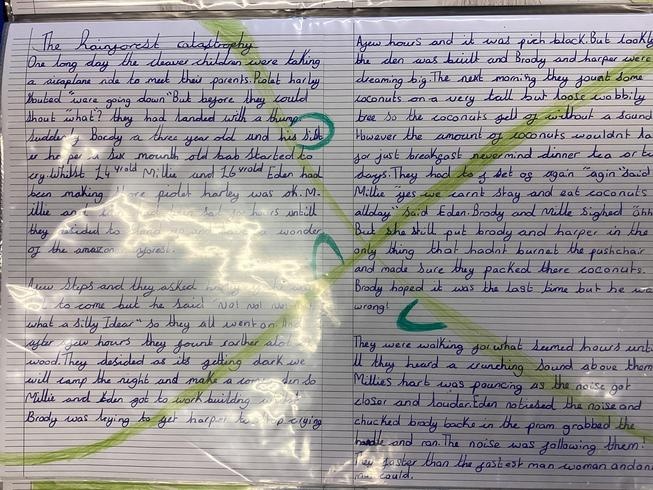 The Rainforest catastrophy
One long day the cleaver children were taking
a airaplane ride to meet their parents. Piolet harley
shouted "were going down" But before they could
shout "what"? they had landed with a thump
suddenly Brody a three year old and his sist
er harper a six mounth old bab started to
cry. Whilst 14 yrold Millie and 16 yrold Eden had
been making sure piolet harley was ok. M-
illie and sat for hours untill
they desided to and have a wonder
of the amazon rainforest.
A few steps and they asked harley
to come but he said "No! no! no!
what a silly Idear" so they all went on. And
after faw hours they fount rarther alot
wood. They desided as its getting dark we
will camp the night and make a den so
Millie and Eden got to work building whilst
Brody was trying to get harper to stop crying
A few hours and it was pich black. But luckly
the den was built and Brody and harper were
dreaming big. The next morning they fount some
coconuts on a very tall but loose wobbily
tree so the coconuts fell of without a sound
However the amount of coconuts wouldnt la
for just breakfast nevermind dinner tea or tw
days. They had to set of again "agin" said
Millie "yes we carnt stay and eat coconuts
allday" said Eden. Brody and Millie sighed "ohh
But she still put brody and harper in the
only thing that hadnt burnet the pushchair
and made sure they packed there coconuts.
Brody hoped it was the last time but he wa
wrong!
They were walking for what seemed hours unti
ll they heard a crunching sound above them
Millies hart was pouncing as the noise got
closer and louder. Eden notiesed the noise and
chucked brody backe in the pram grabbed the
handle and ran. The noise was following them!
faster than the fastest man woman and an
could.